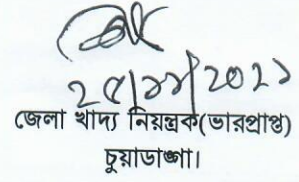 ২৫/১১/2021
জেলা খাদ্য নিয়ন্ত্রক(ভারপ্রাপ্ত)
চুয়াডাঙ্গা।